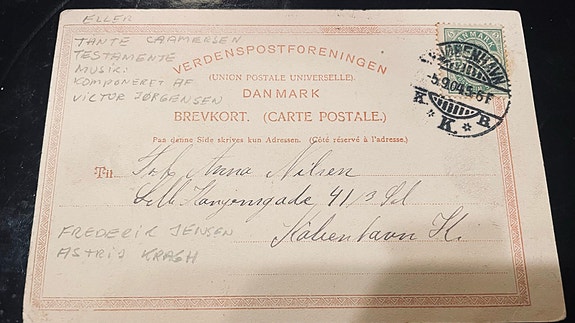 ELLER
TANTE CRAMERSEN
TESTAMENTE
MUSIK.
KOMPONERET AF
VICTOR JØRGENSEN
VERDENSPOSTFORENINGEN
(UNION POSTALE UNIVERSELLE).
DANMARK
BREVKORT. (CARTE POSTALE.)
Paa denne Side skrives kun Adressen. (Côté réservé à l'adresse.)
DANMARK
KJØBENHAVN
5.9.04.5-6F
K. K. B
Til
Frk Anna Nilsen
41/3 Sal
København K.
FREDERIK JENSEN
ASTRID KRAGH